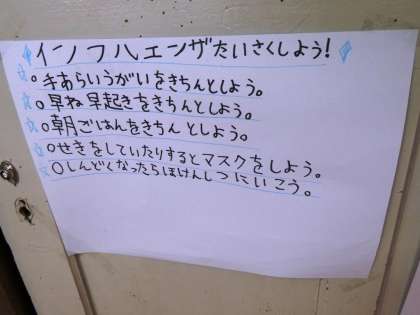 インフルエンザたいさくしよう!
○手あらいうがいをきちんとしよう。
○早ね早起きをきちんとしよう。
○朝ごはんをきちんとしよう。
○せきをしていたりするとマスクをしよう。
○しんどくなったらほけんしつにいこう。